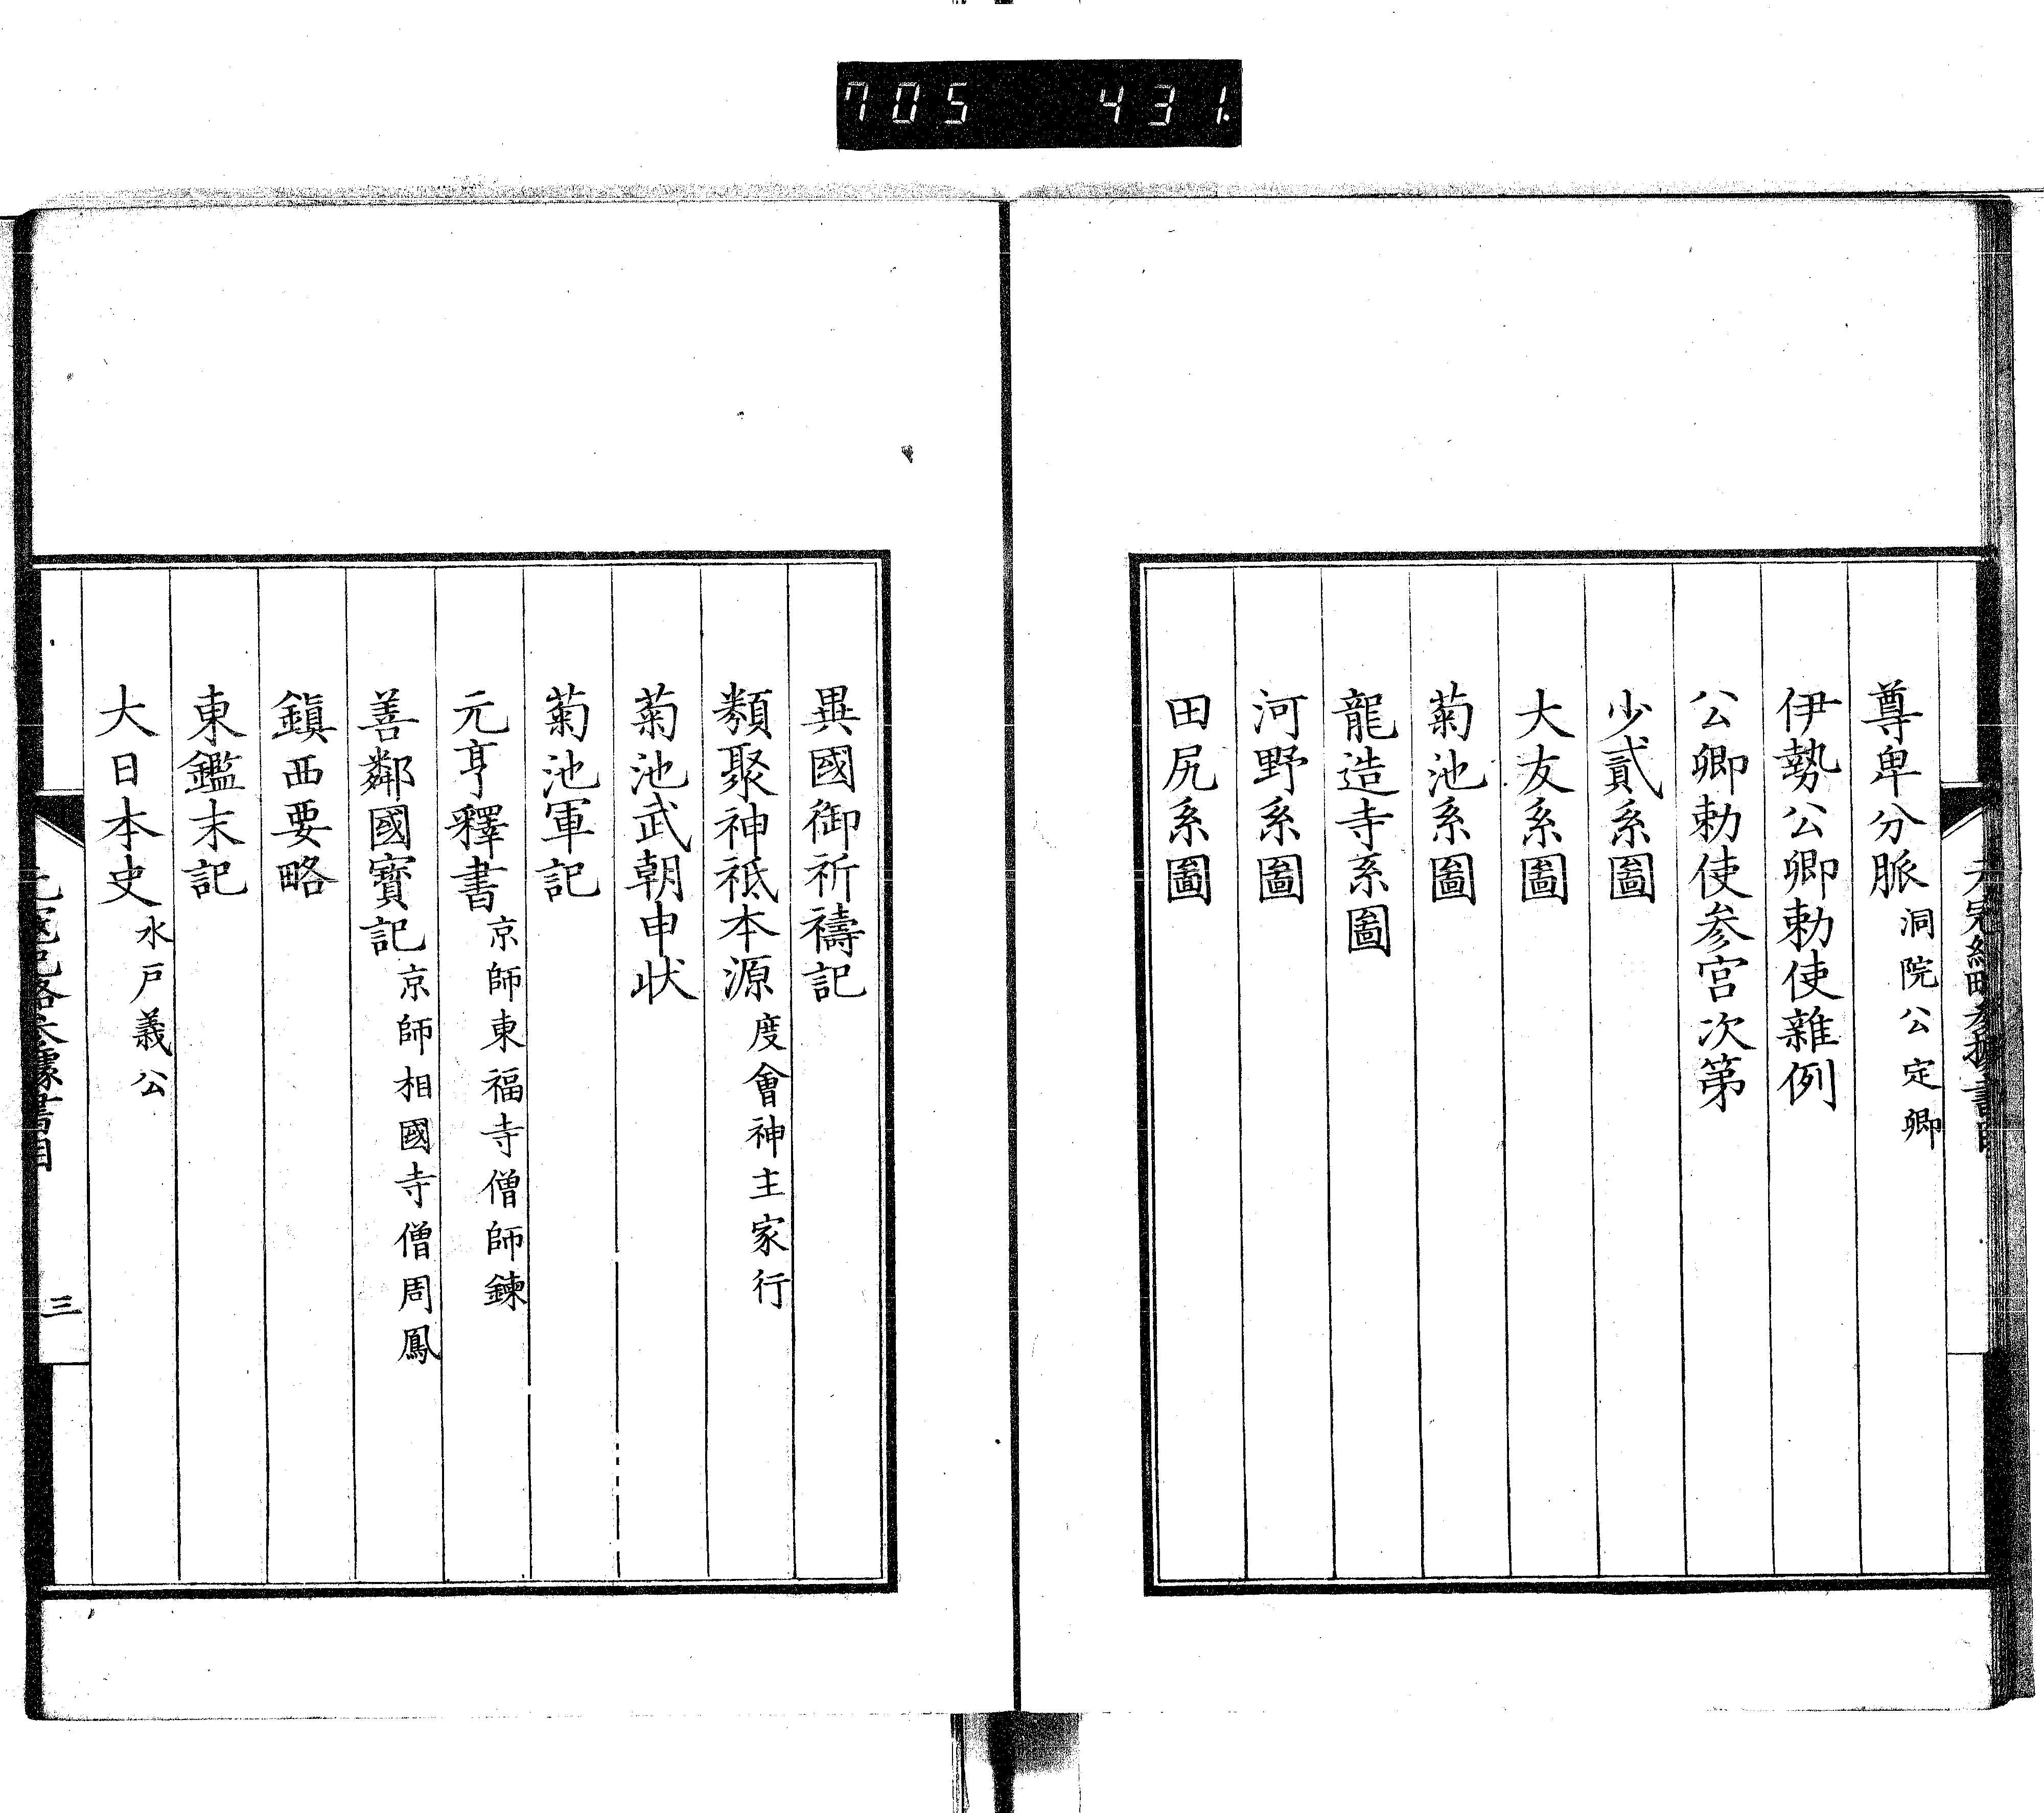 705 431
尊卑分脈 洞院公定卿
伊勢公卿勅使雜例
公卿勅使参宮次第
少貳系圖
大友系圖
菊池系圖
龍造寺系圖
河野系圖
田尻系圖
異國御祈禱記
類聚神祇本源 度會神主家行
菊池武朝申状
菊池軍記
元亨釋書 京師東福寺僧師鍊
善鄰國寶記 京師相國寺僧周鳳
鎭西要略
東鑑末記
大日本史 水戸義公
三